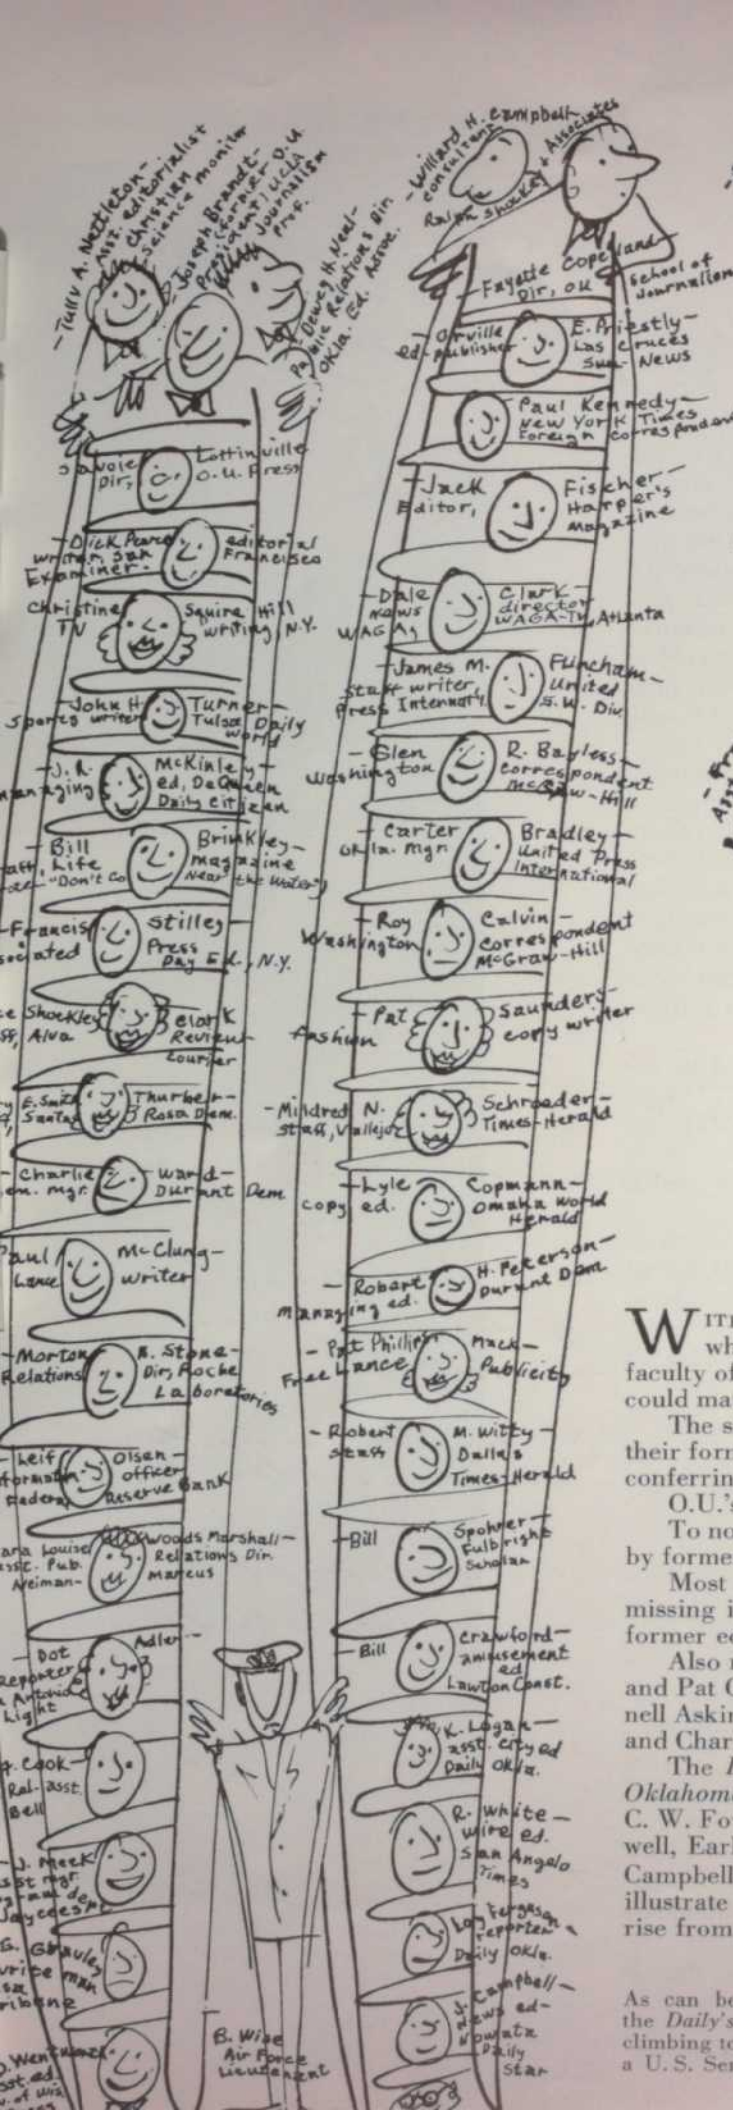 -Tully A. Nettleton-
Asst. editorialist
Christian
Science monitor
-Joseph Brandt-
(former O.U.
President) UCLA
Journalism
Prof.
-Dewey H. Neal-
Public Relations Dir
Okla. Ed. Assoc.
Savoie Lottinville
Dir, O.U. Press
-Dick Pearce editorial
writer, San Francisco
Examiner-
Christine Squire Hill
TV writing, N.Y.
-John H. Turner-
Sports writer Tulsa Daily
World
-J.R. McKinley-
managing ed, DeQueen
Daily Citizen
-Bill Brinkley-
Life magazine
"Don't Go Near the Water"
-Francis Stilley
Press
Day Ed., N.Y.
Shockley Clark
Alva Review-
Courier
E. Smith Thurber-
Santa Rosa Dem.
-Charlie Ward-
mgr. Durant Dem
Paul McClung-
Lance writer
-Morton R. Stone-
Relations Dir, Roche
Laboratories
-Leif Olsen-
officer
Federal Reserve Bank
Louise Woods Marshall-
asst. Pub. Relations Dir.
Neiman-Marcus
-Dot Adler-
Reporter
Antonio
Light
Cook-
Rel. asst.
Bell
-J. Meek
asst mgr.
dept
Jaycees
G. Ghaules
write man
Tribune
-Willard H. Campbell-
consultant
Ralph Shockey & Associates
-Fayette Copeland-
Dir, OU School of
Journalism
Orville E. Priestly-
ed-publisher Las Cruces
Sun-News
Paul Kennedy-
New York Times
Foreign Correspondent
-Jack Fischer-
Editor, Harper's
magazine
-Dale Clark-
news director
WAGA, WAGA-TV, Atlanta
-James M. Flincham-
Staff writer United
Press Internat'l. S.W. Div
-Glen R. Bayless-
Washington correspondent
McGraw-Hill
-Carter Bradley-
Okla. mgr. United Press
International
-Roy Calvin-
Washington correspondent
McGraw-Hill
-Pat Saunders-
fashion copy writer
-Mildred N. Schroeder-
Staff, Vallejo Times-Herald
-Lyle Copmann-
copy ed. Omaha World
Herald
-Robert H. Peterson-
managing ed. Durant Dem
-Pat Phillips Mack-
Free Lance Publicity
-Robert M. Witty-
staff Dallas
Times-Herald
-Bill Spohrer-
Fulbright
Scholar
-Bill Crawford-
amusement
ed
Lawton Const.
K. Logan-
asst. city ed
Daily Okla.
R. White-
wire ed.
San Angelo
Times
Ferguson
reporter-
Daily Okla.
J. Campbell-
News ed-
Nowata
Daily
Star
B. Wise
Air Force
Lieutenant
faculty of
The
their
by
Most
missing
former
Also
and Pat
nell
and
The
C. W.
well,
Campbell
illustrate
rise from
As can be
the Daily's
climbing
a U. S.